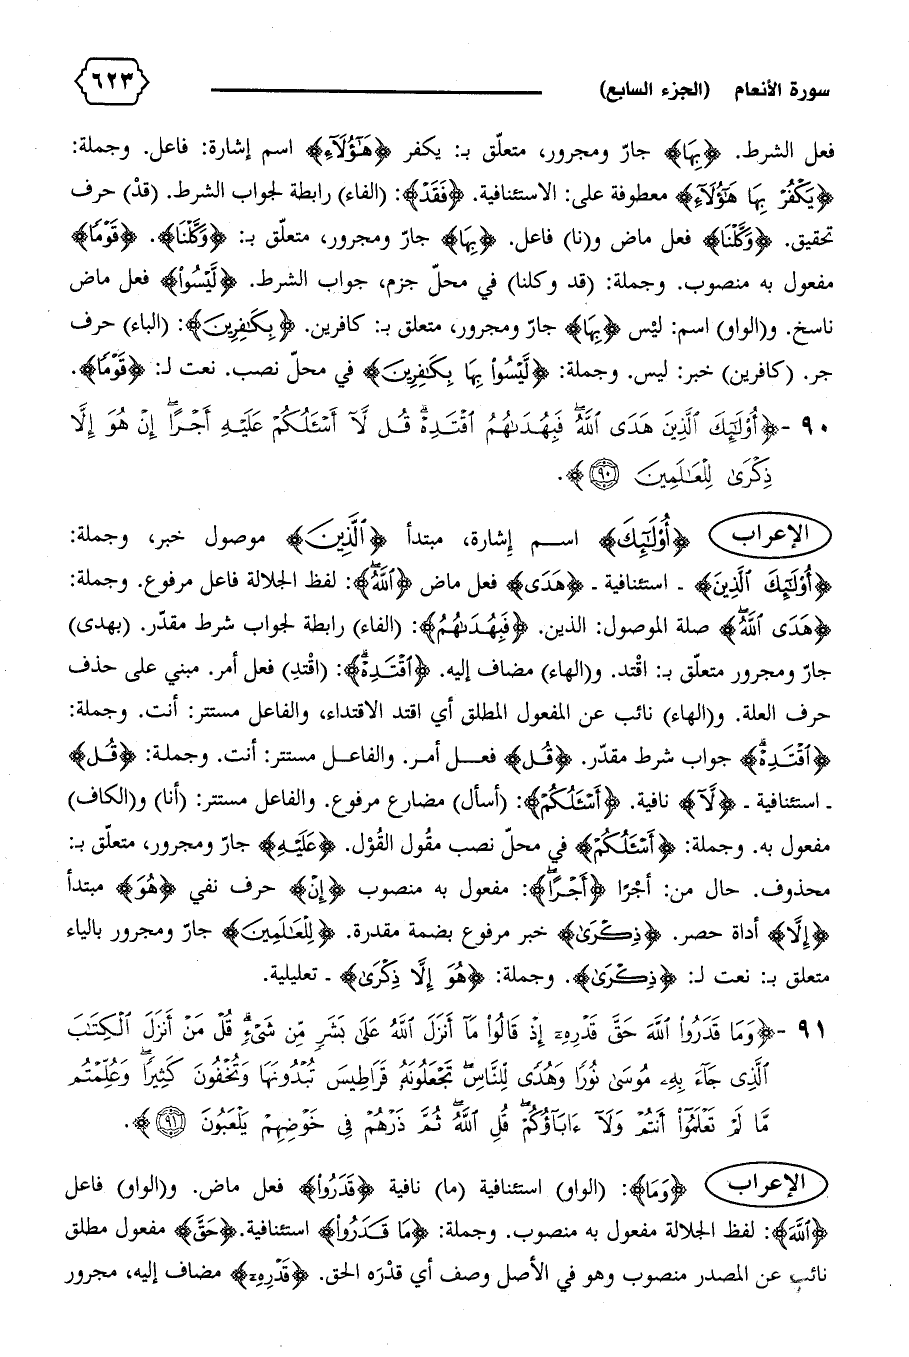 سورة الأنعام (الجزء السابع)
٦٢٣
فعل الشرط. ﴿بِهَا﴾ جارّ ومجرور، متعلّق بـ: يكفر ﴿هَٰٓؤُلَآءِ﴾ اسم إشارة: فاعل. وجملة:
﴿يَكْفُرْ بِهَا هَٰٓؤُلَآءِ﴾ معطوفة على: الاستئنافية. ﴿فَقَدْ﴾: (الفاء) رابطة لجواب الشرط. (قدْ) حرف
تحقيق. ﴿وَكَّلْنَا﴾ فعل ماض و(نا) فاعل. ﴿بِهَا﴾ جارّ ومجرور، متعلّق بـ: ﴿وَكَّلْنَا﴾. ﴿قَوْمًا﴾
مفعول به منصوب. وجملة: (قد وكلنا) في محلّ جزم، جواب الشرط. ﴿لَّيْسُوا۟﴾ فعل ماض
ناسخ. و(الواو) اسم: ليْس ﴿بِهَا﴾ جارّ ومجرور، متعلق بـ: كافرين. ﴿بِكَٰفِرِينَ﴾: (الباء) حرف
جر. (كافرين) خبر: ليس. وجملة: ﴿لَّيْسُوا۟ بِهَا بِكَٰفِرِينَ﴾ في محلّ نصب. نعت لـ: ﴿قَوْمًا﴾.
٩٠ -﴿أُو۟لَٰٓئِكَ ٱلَّذِينَ هَدَى ٱللَّهُ ۖ فَبِهُدَىٰهُمُ ٱقْتَدِهْ ۗ قُل لَّآ أَسْـَٔلُكُمْ عَلَيْهِ أَجْرًا ۖ إِنْ هُوَ إِلَّا
ذِكْرَىٰ لِلْعَٰلَمِينَ ٩٠﴾.
الإعراب ﴿أُو۟لَٰٓئِكَ﴾ اسم إشارة، مبتدأ ﴿ٱلَّذِينَ﴾ موصول خبر، وجملة:
﴿أُو۟لَٰٓئِكَ ٱلَّذِينَ﴾ ـ استئنافية ـ ﴿هَدَى﴾ فعل ماض ﴿ٱللَّهُ ۖ﴾: لفظ الجلالة فاعل مرفوع. وجملة:
﴿هَدَى ٱللَّهُ ۖ﴾ صلة الموصول: الذين. ﴿فَبِهُدَىٰهُمُ﴾: (الفاء) رابطة لجواب شرط مقدّر. (بهدى)
جارّ ومجرور متعلّق بـ: اقْتد. و(الهاء) مضاف إليه. ﴿ٱقْتَدِهْ ۗ﴾: (اقْتدِ) فعل أمر. مبني على حذف
حرف العلة. و(الهاء) نائب عن المفعول المطلق أي اقتد الاقتداء، والفاعل مستتر: أنت. وجملة:
﴿ٱقْتَدِهْ ۗ﴾ جواب شرط مقدّر. ﴿قُل﴾ فعل أمر. والفاعل مستتر: أنت. وجملة: ﴿قُل﴾
ـ استئنافية ـ ﴿لَّآ﴾ نافية. ﴿أَسْـَٔلُكُمْ﴾: (أسأل) مضارع مرفوع. والفاعل مستتر: (أنا) و(الكاف)
مفعول به. وجملة: ﴿أَسْـَٔلُكُمْ﴾ في محلّ نصب مقُول القوْل. ﴿عَلَيْهِ﴾ جارّ ومجرور، متعلّق بـ:
محذوف. حال من: أجْرًا ﴿أَجْرًا ۖ﴾: مفعول به منصوب ﴿إِنْ﴾ حرف نفي ﴿هُوَ﴾ مبتدأ
﴿إِلَّا﴾ أداة حصر. ﴿ذِكْرَىٰ﴾ خبر مرفوع بضمة مقدرة. ﴿لِلْعَٰلَمِينَ﴾ جارّ ومجرور بالياء
متعلق بـ: نعت لـ: ﴿ذِكْرَىٰ﴾. وجملة: ﴿هُوَ إِلَّا ذِكْرَىٰ﴾ ـ تعليلية.
٩١ -﴿وَمَا قَدَرُوا۟ ٱللَّهَ حَقَّ قَدْرِهِۦٓ إِذْ قَالُوا۟ مَآ أَنزَلَ ٱللَّهُ عَلَىٰ بَشَرٍ مِّن شَىْءٍ ۗ قُلْ مَنْ أَنزَلَ ٱلْكِتَٰبَ
ٱلَّذِى جَآءَ بِهِۦ مُوسَىٰ نُورًا وَهُدًى لِّلنَّاسِ ۖ تَجْعَلُونَهُۥ قَرَاطِيسَ تُبْدُونَهَا وَتُخْفُونَ كَثِيرًا ۖ وَعُلِّمْتُم
مَّا لَمْ تَعْلَمُوٓا۟ أَنتُمْ وَلَآ ءَابَآؤُكُمْ ۖ قُلِ ٱللَّهُ ۖ ثُمَّ ذَرْهُمْ فِى خَوْضِهِمْ يَلْعَبُونَ ٩١﴾.
الإعراب ﴿وَمَا﴾: (الواو) استئنافية (ما) نافية ﴿قَدَرُوا۟﴾ فعل ماض. و(الواو) فاعل
﴿ٱللَّهَ﴾: لفظ الجلالة مفعول به منصوب. وجملة: ﴿مَا قَدَرُوا۟﴾ استئنافية. ﴿حَقَّ﴾ مفعول مطلق
نائب عن المصدر منصوب وهو في الأصل وصف أي قدْرَه الحق. ﴿قَدْرِهِۦٓ﴾ مضاف إليه، مجرور